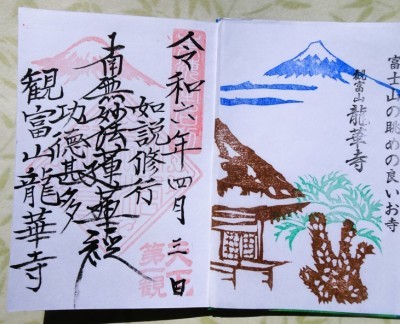 富士山の眺めの良いお寺
観富山 龍華寺
令和六年 四月 三日
如説修行
南無妙法蓮華経
功徳甚多
観富山龍華寺
天下
第一観